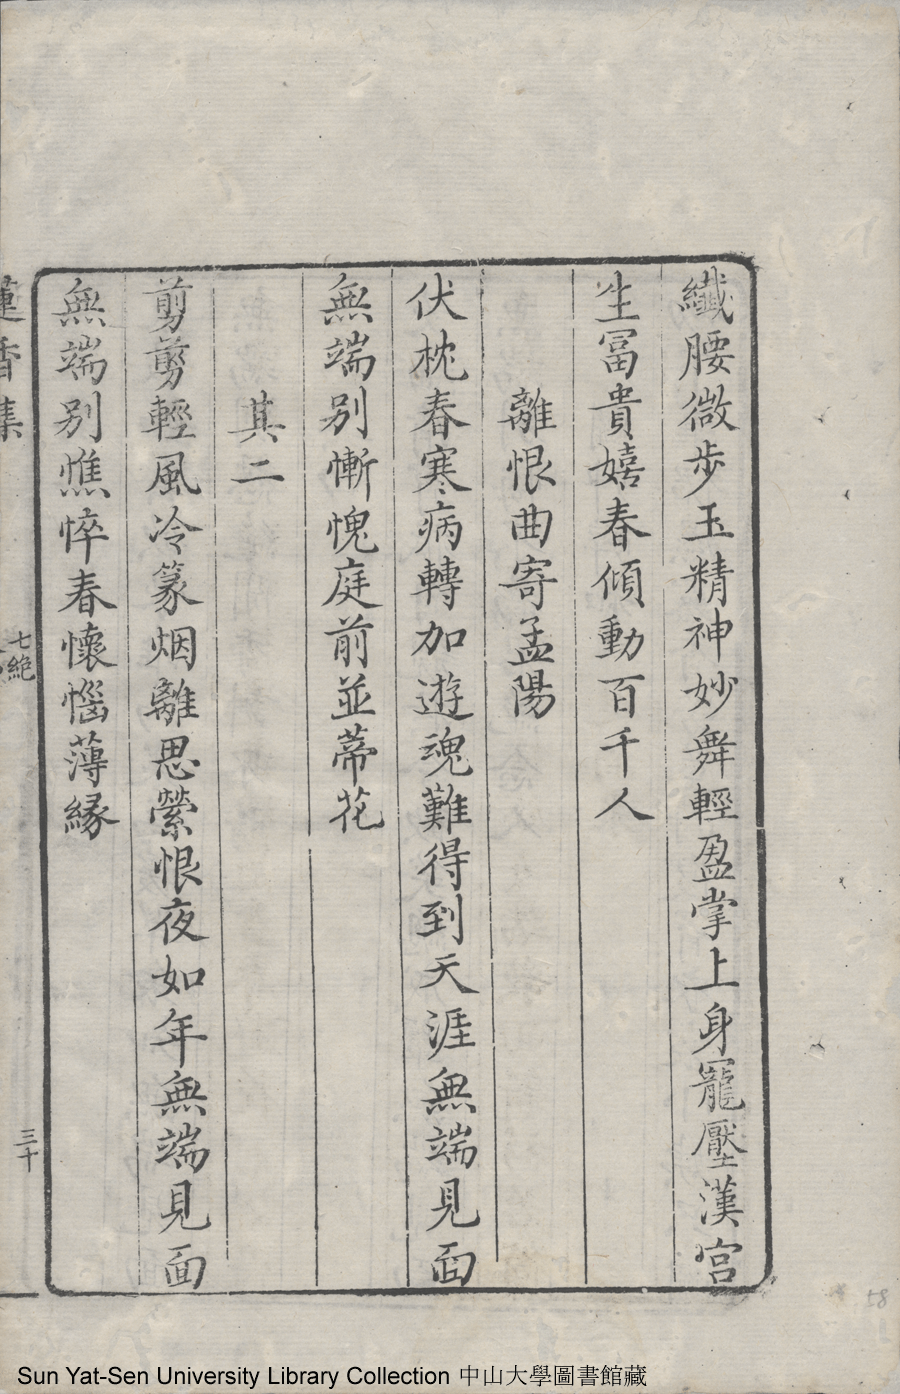 纖腰微步玉精神妙舞輕盈掌上身寵壓漢宫
生冨貴嬉春傾動百千人
離恨曲寄孟陽
伏枕春寒病轉加遊魂難得到天涯無端見面
無端别慚愧庭前並蒂花
其二
剪剪輕風冷篆烟離思縈恨夜如年無端見面
無端别憔悴春懷惱薄緣
蓮香集
七絶
三十
58
Sun Yat-Sen University Library Collection 中山大學圖書館藏